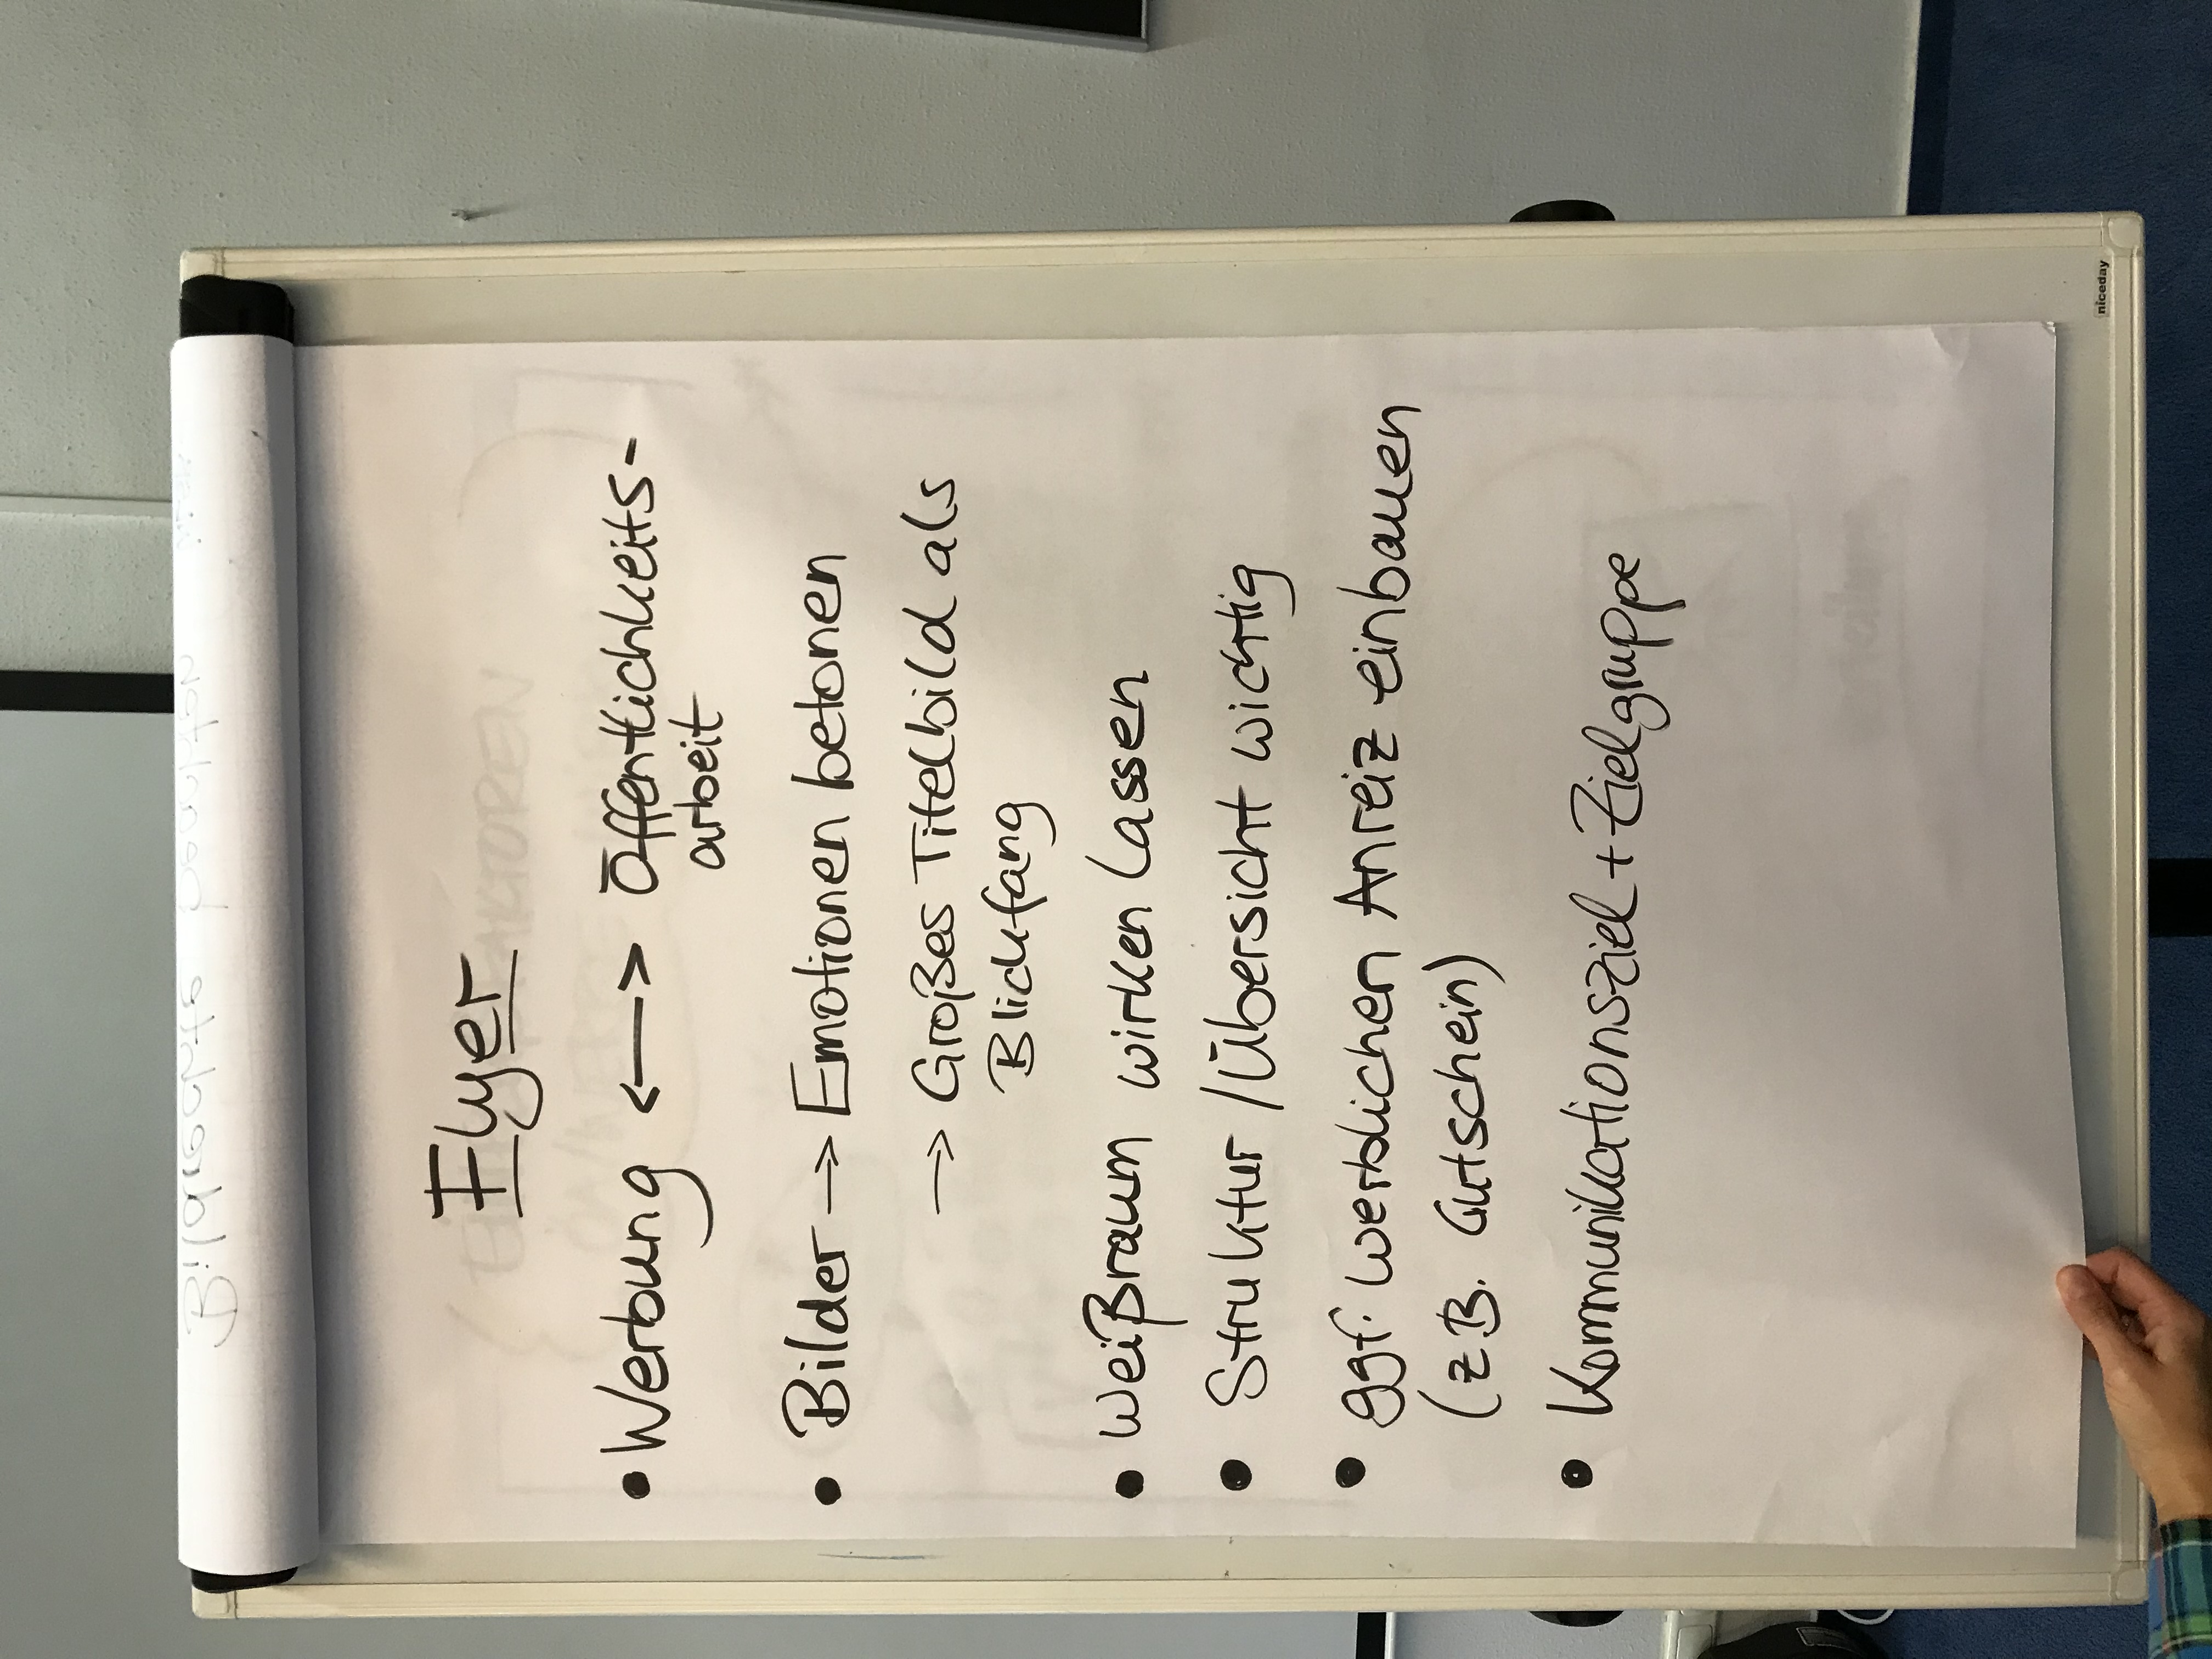 Flyer
• Werbung <—> Öffentlichkeits-
arbeit
• Bilder —> Emotionen betonen
—> Großes Titelbild als
Blickfang
• Weißraum wirken lassen
• Struktur / Übersicht wichtig
• ggf. werblichen Anreiz einbauen
(z.B. Gutschein)
• Kommunikationsziel + Zielgruppe
niceday